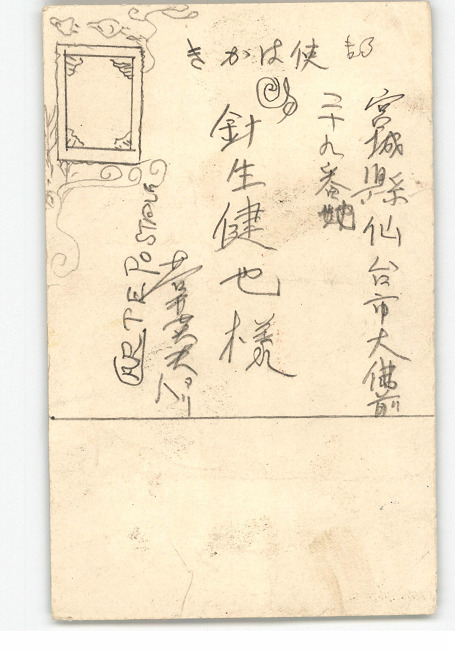 きかは便郵
宮城縣仙台市大佛前
二十九番地
針生健也様
CARTE POSTALE